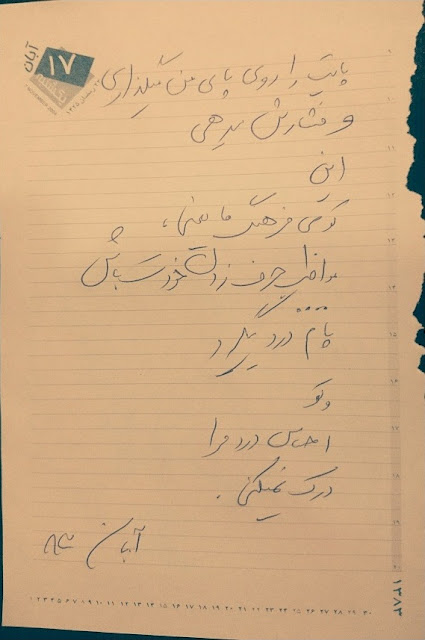 آبان
۱۷
پایت را روی پای من میگذاری
و فشارش میدهی
این
توی فرهنگ ما یعنی،
مواظب حرف زدن خودت باش
....
پام درد میگیرد
و تو
احساس درد مرا
درک نمیکنی.
آبان ۸۳
۱۳۸۳
۱ ۲ ۳ ۴ ۵ ۶ ۷ ۸ ۹ ۱۰ ۱۱ ۱۲ ۱۳ ۱۴ ۱۵ ۱۶ ۱۷ ۱۸ ۱۹ ۲۰ ۲۱ ۲۲ ۲۳ ۲۴ ۲۵ ۲۶ ۲۷ ۲۸ ۲۹ ۳۰